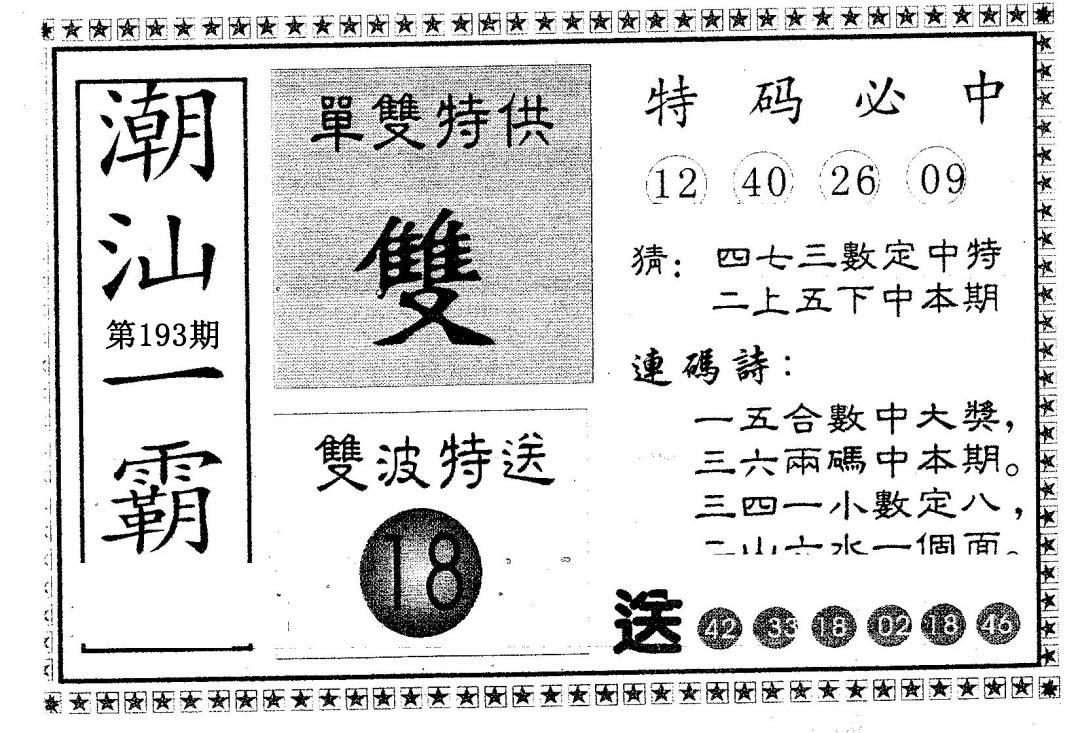 潮汕一霸
第193期
單雙特供
雙
雙波特送
18
特码必中
12 40 26 09
猜：四七三數定中特
二上五下中本期
連碼詩：
一五合數中大獎，
三六兩碼中本期。
三四一小數定八，
二山六水一個面。
送 42 33 18 02 18 46